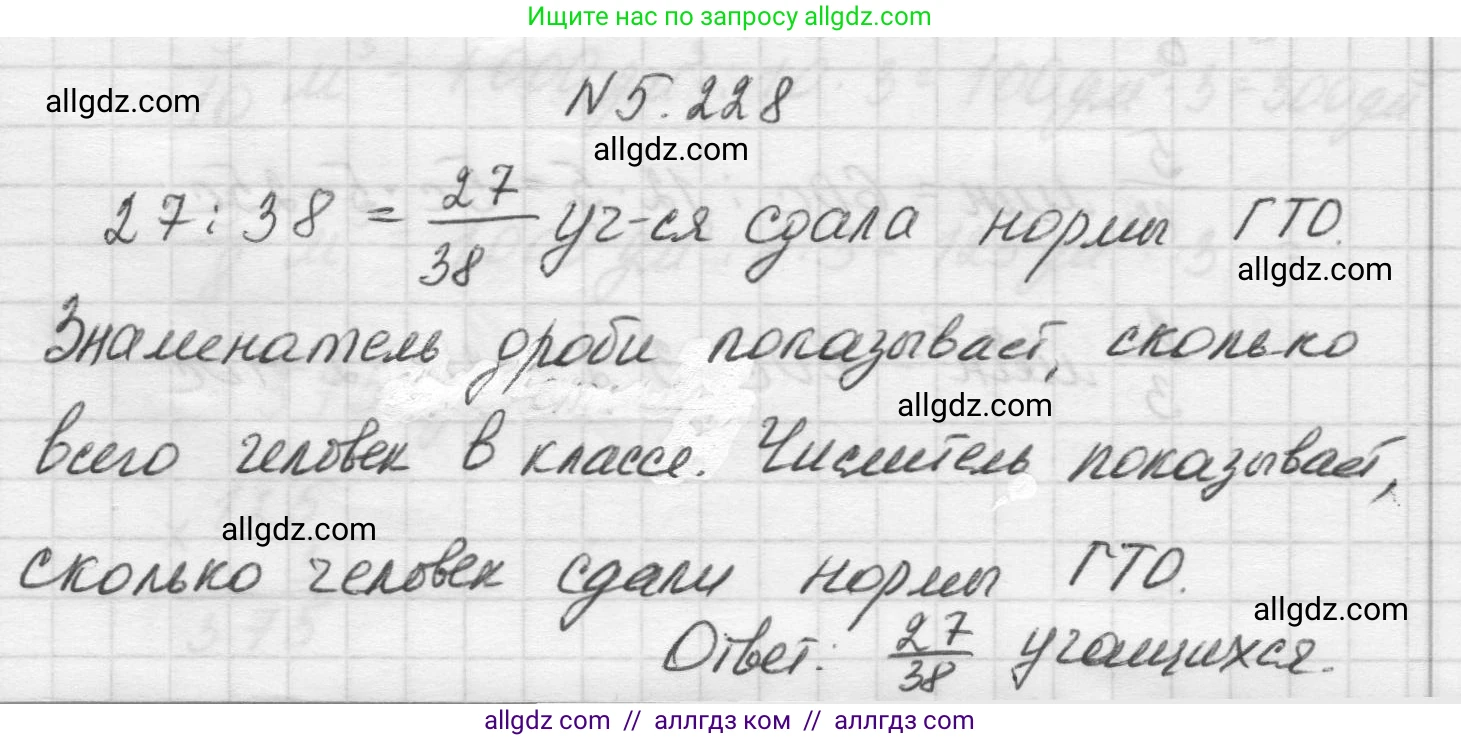 Ищите нас по запросу allgdz.com
allgdz.com
N 5.228
allgdz.com
27 : 38 = 27/38 уч-ся сдала нормы ГТО.
allgdz.com
Знаменатель дроби показывает, сколько
allgdz.com
всего человек в классе. Числитель показывает,
allgdz.com
сколько человек сдали нормы ГТО.
allgdz.com
Ответ: 27/38 учащихся.
allgdz com // аллгдз ком // аллгдз com